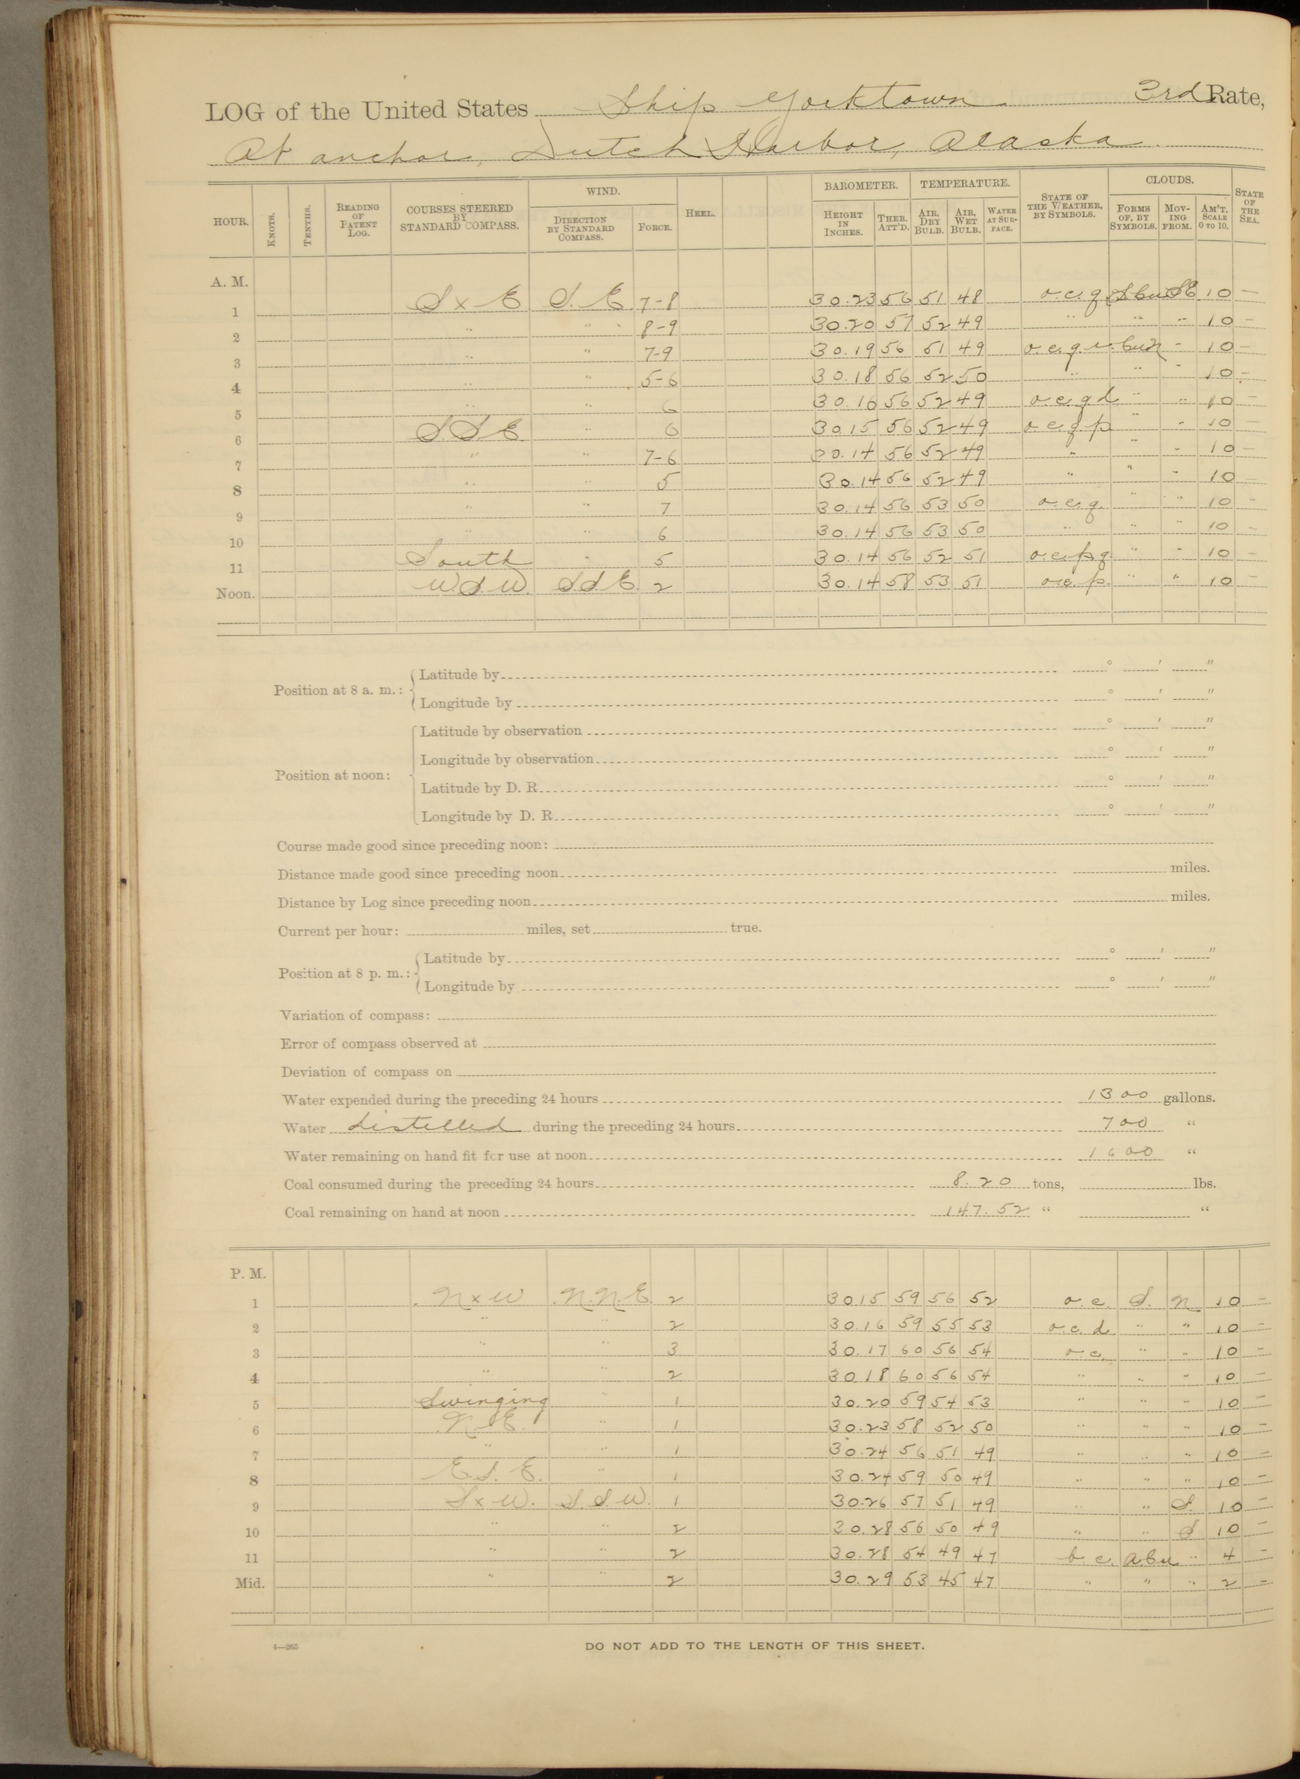 LOG of the United States Ship Yorktown 3rd Rate,
At anchor, Dutch Harbor, Alaska.
HOUR. KNOTS. TENTHS. READING OF PATENT LOG. COURSES STEERED BY STANDARD COMPASS. WIND. DIRECTION BY STANDARD COMPASS. FORCE. HEEL. BAROMETER. HEIGHT IN INCHES. THER. ATT'D. TEMPERATURE. AIR, DRY BULB. AIR, WET BULB. WATER AT SURFACE. STATE OF THE WEATHER, BY SYMBOLS. CLOUDS. FORMS OF, BY SYMBOLS. MOVING FROM. AM'T, SCALE 0 TO 10. STATE OF THE SEA.
A. M.
1 S x E S. E 7-8 30.23 56 51 48 o.c.q. S.Cu. SE 10 —
2 " " 8-9 30.20 57 52 49 " " " 10 —
3 " " 7-9 30.19 56 51 49 " 10 —
4 " " 5-6 30.18 56 52 50 " " " 10 —
5 " " 6 30.16 56 52 49 o.c.q.d. " " 10 —
6 S S E " 6 30.15 56 52 49 o.c.q.p. " " 10 —
7 " " 7-6 30.14 56 52 49 " " " 10 —
8 " " 5 30.14 56 52 49 " " " 10 —
9 " " 7 30.14 56 53 50 o.c.q. " " 10 —
10 " " 6 30.14 56 53 50 " " " 10 —
11 South " 5 30.14 56 52 51 o.c.p.q. " " 10 —
Noon. W S W. S.S.E. 2 30.14 58 53 51 o.c.p. " " 10 —
Position at 8 a. m.: Latitude by ° ' "
Longitude by ° ' "
Position at noon: Latitude by observation ° ' "
Longitude by observation ° ' "
Latitude by D. R. ° ' "
Longitude by D. R. ° ' "
Course made good since preceding noon:
Distance made good since preceding noon miles.
Distance by Log since preceding noon miles.
Current per hour: miles, set true.
Position at 8 p. m.: Latitude by ° ' "
Longitude by ° ' "
Variation of compass:
Error of compass observed at
Deviation of compass on
Water expended during the preceding 24 hours 1300 gallons.
Water distilled during the preceding 24 hours 700 "
Water remaining on hand fit for use at noon 1600 "
Coal consumed during the preceding 24 hours 8.20 tons, lbs.
Coal remaining on hand at noon 147.52 " "
P. M.
1 N x W N.N.E. 2 30.15 59 56 52 o.c. S. N 10 —
2 " " 2 30.16 59 55 53 o.c.d. " " 10 —
3 " " 3 30.17 60 56 54 o.c. " " 10 —
4 " " 2 30.18 60 56 54 " " " 10 —
5 Swinging " 1 30.20 59 54 53 " " " 10 —
6 N. E. " 1 30.23 58 52 50 " " " 10 —
7 " " 1 30.24 56 51 49 " " " 10 —
8 E. S. E. " 1 30.24 59 50 49 " " " 10 —
9 S x W. S S W. 1 30.26 57 51 49 " " S. 10 —
10 " " 2 30.28 56 50 49 " " S 10 —
11 " " 2 30.28 54 49 47 b.c. A.Cu. " 4 —
Mid. " " 2 30.29 53 45 47 " " " 2 —
4—265
DO NOT ADD TO THE LENGTH OF THIS SHEET.